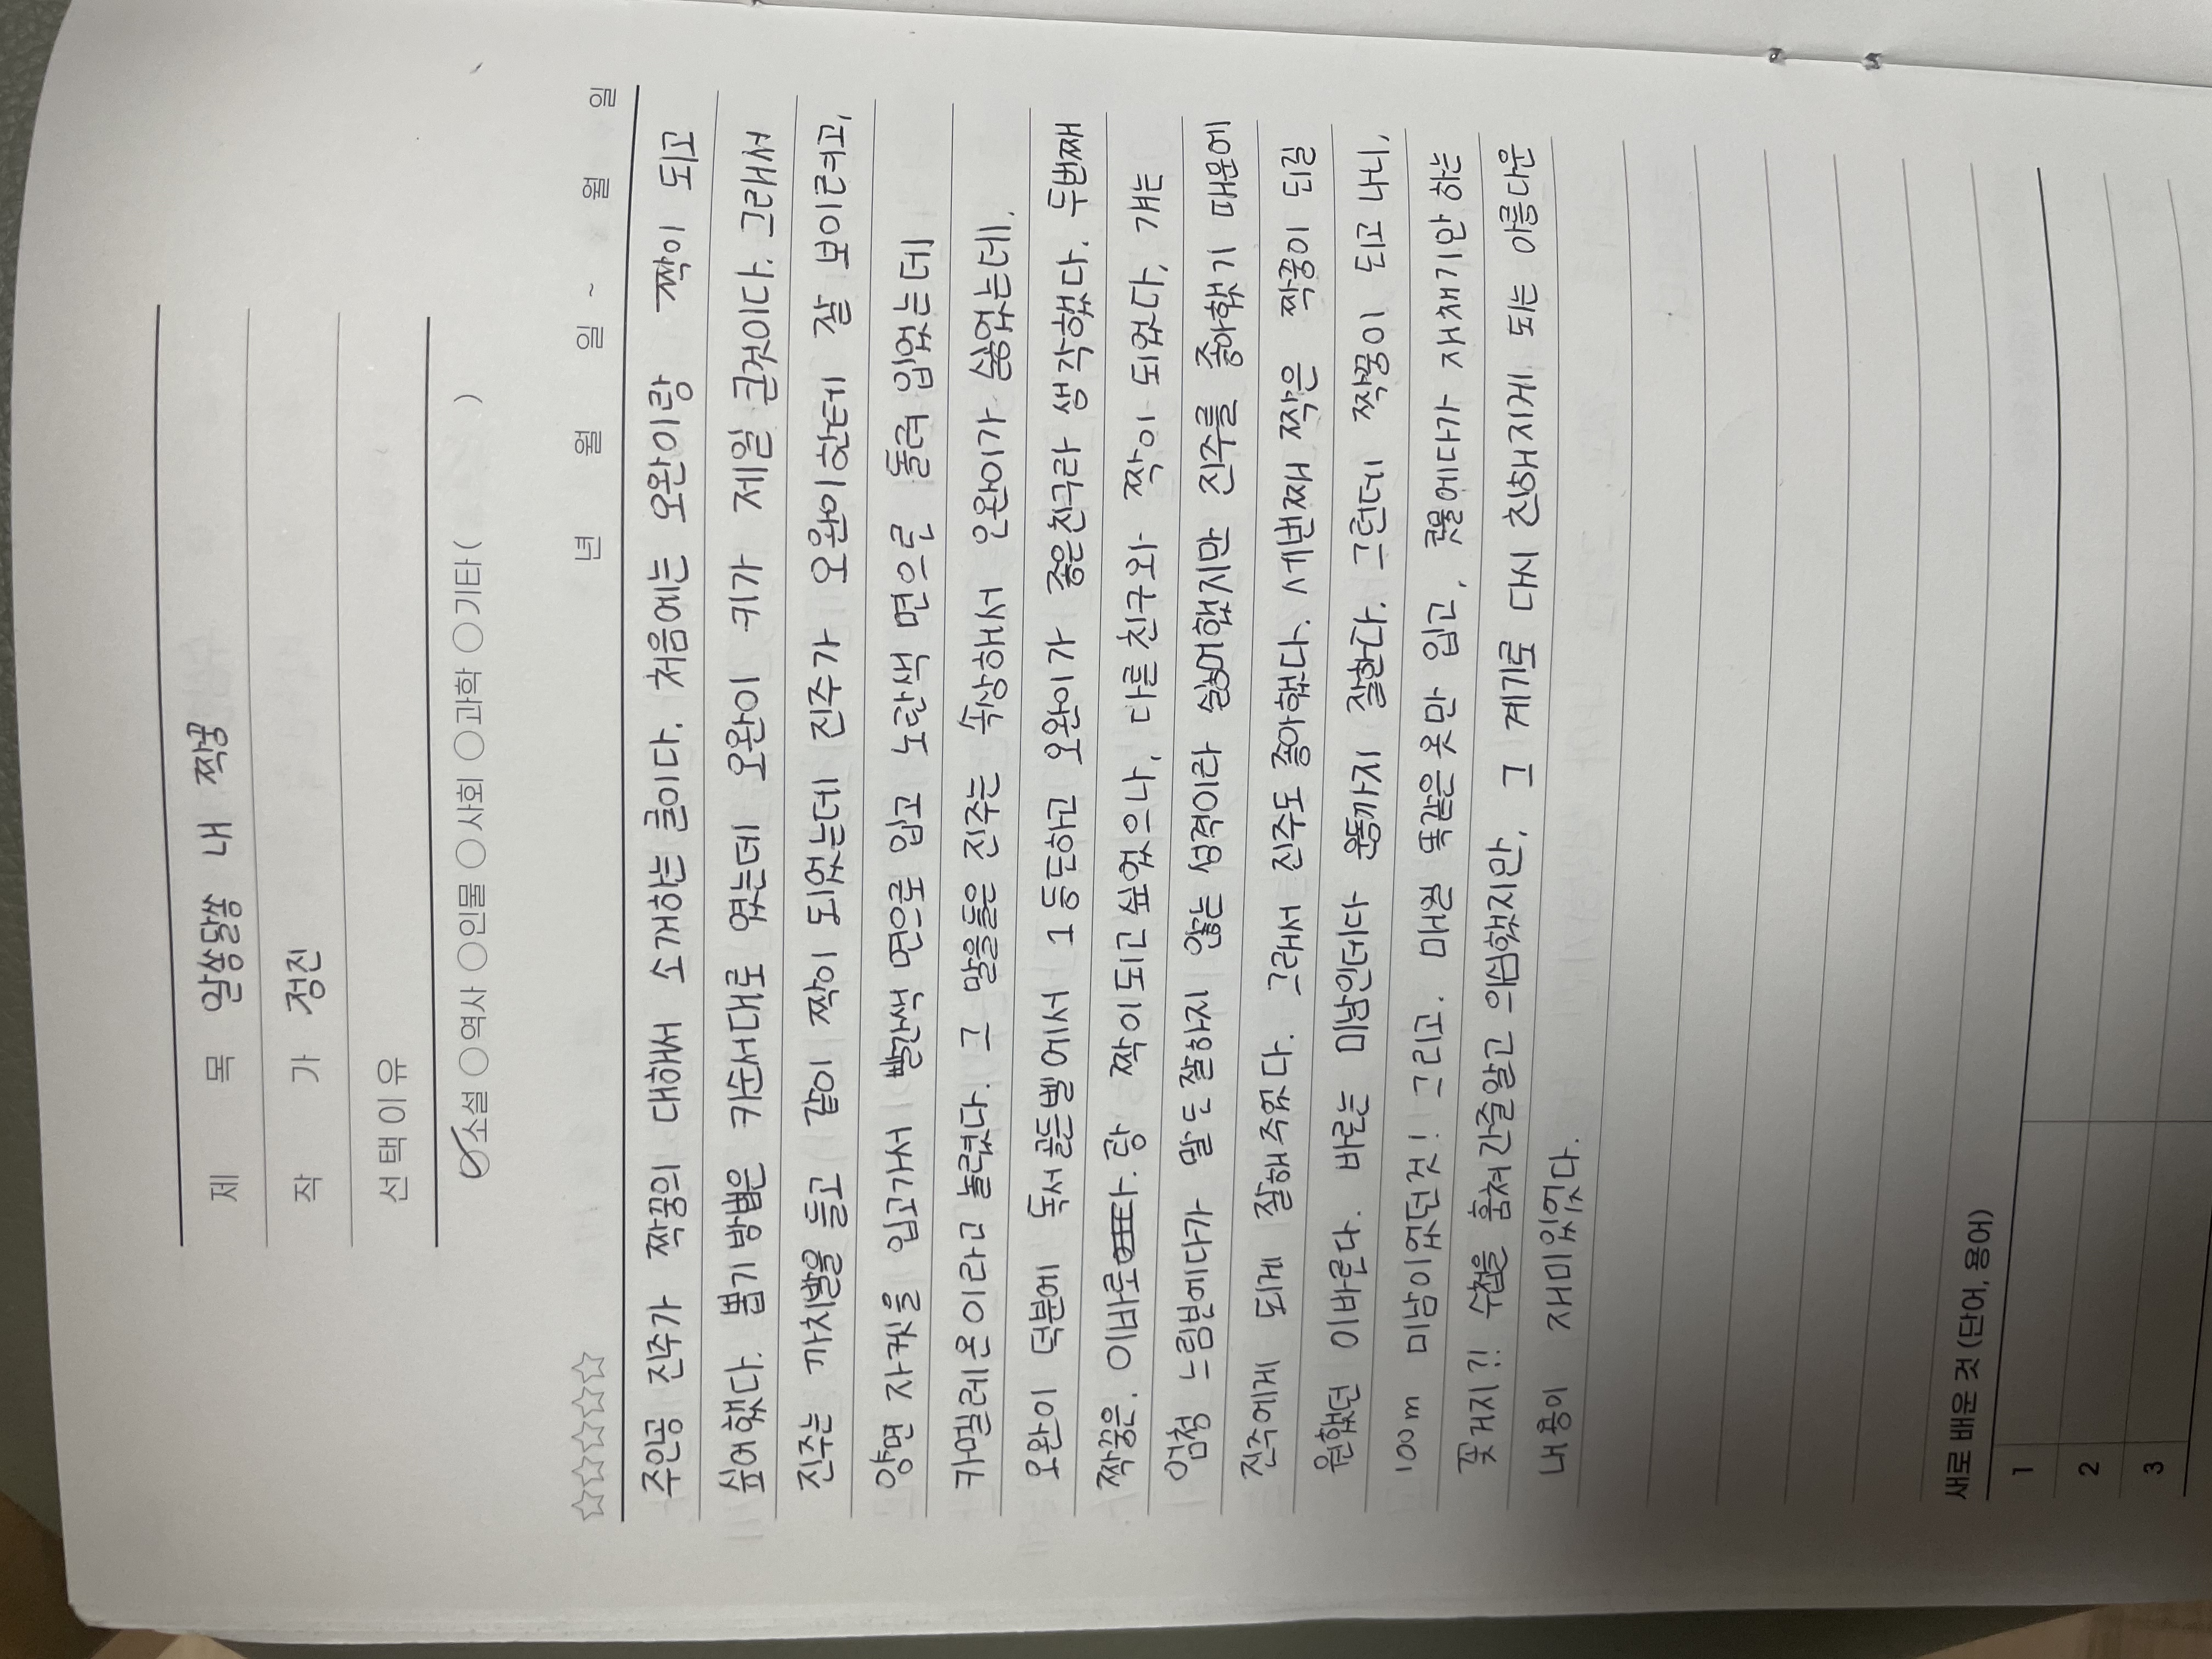 제 목 알쏭달쏭 내 짝꿍
작 가 정진
선택이유
소설 역사 인물 사회 과학 기타 ( )
년 월 일 ~ 월 일
주인공 진주가 짝꿍의 대해서 소개하는 글이다. 처음에는 오완이랑 짝이 되고
싶어했다. 뽑기 방법은 키순서대로 였는데 오완이 키가 제일 큰것이다. 그래서
진주는 까치발을 들고 같이 짝이 되었는데 진주가 오완이한테 잘 보이려고,
양면 자켓을 입고가서 빨간색 면으로 입고 노란색 면으로 돌려 입었는데
카멜레온이라고 놀렸다. 그 말을들은 진주는 속상해서 오완이가 싫었는데.
오완이 덕분에 독서골든벨에서 1등도하고 오완이가 좋은친구라 생각했다. 두번째
짝꿍은. 이바로 랑 짝이되고싶었으나, 다른친구와 짝이 되었다, 걔는
엄청 느림보에다가 말도잘하지 않는 성격이라 싫어했지만 진주를 좋아했기 때문에
진주에게 되게 잘해주었다. 그래서 진주도 좋아했다. 세번째 짝은 짝꿍이 되길
원했던 이바로다. 바로는 미남인데다 운동까지 잘한다. 그런데 짝꿍이 되고 나니,
100m 미남이었던것! 그리고. 매일 똑같은옷만 입고, 콧물에다가 재채기만 하는
꽃거지?! 수첩을 훔쳐간줄알고 의심했지만, 그 계기로 다시 친해지게 되는 아름다운
내용이 재미있었다.
새로 배운 것 (단어, 용어)
1
2
3